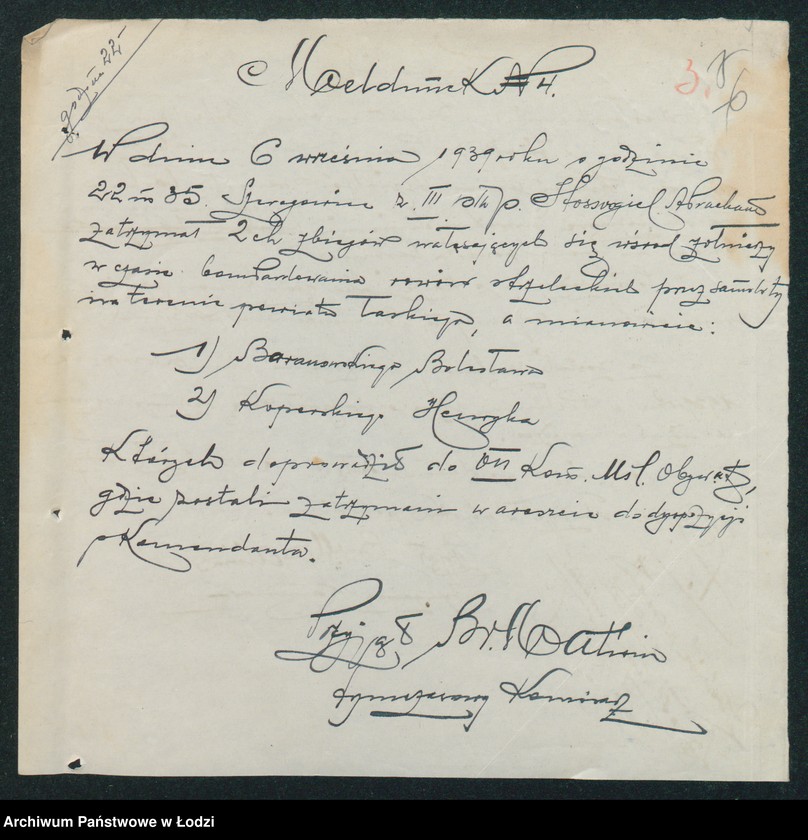 Meldunek № 4.
3. 8/6
W dniu 6 września 1939 roku o godzinie
22 m 35. Szeregowiec z III p. Abracham
zatrzymał 2ch zbiegów wałęsających się wśród żołnierzy
w czasie bombardowania rowów strzeleckich przez samoloty
na terenie powiatu Łaskiego, a mianowicie:
1) Baranowskiego Bolesława
2) Koperskiego Henryka
Których doprowadził do VII Kom. Obywat,
gdzie zostali zatrzymani w areszcie do dyspozycji
p Komendanta.
Przyjął Br.
tymczasowy Komisarz
Archiwum Państwowe w Łodzi